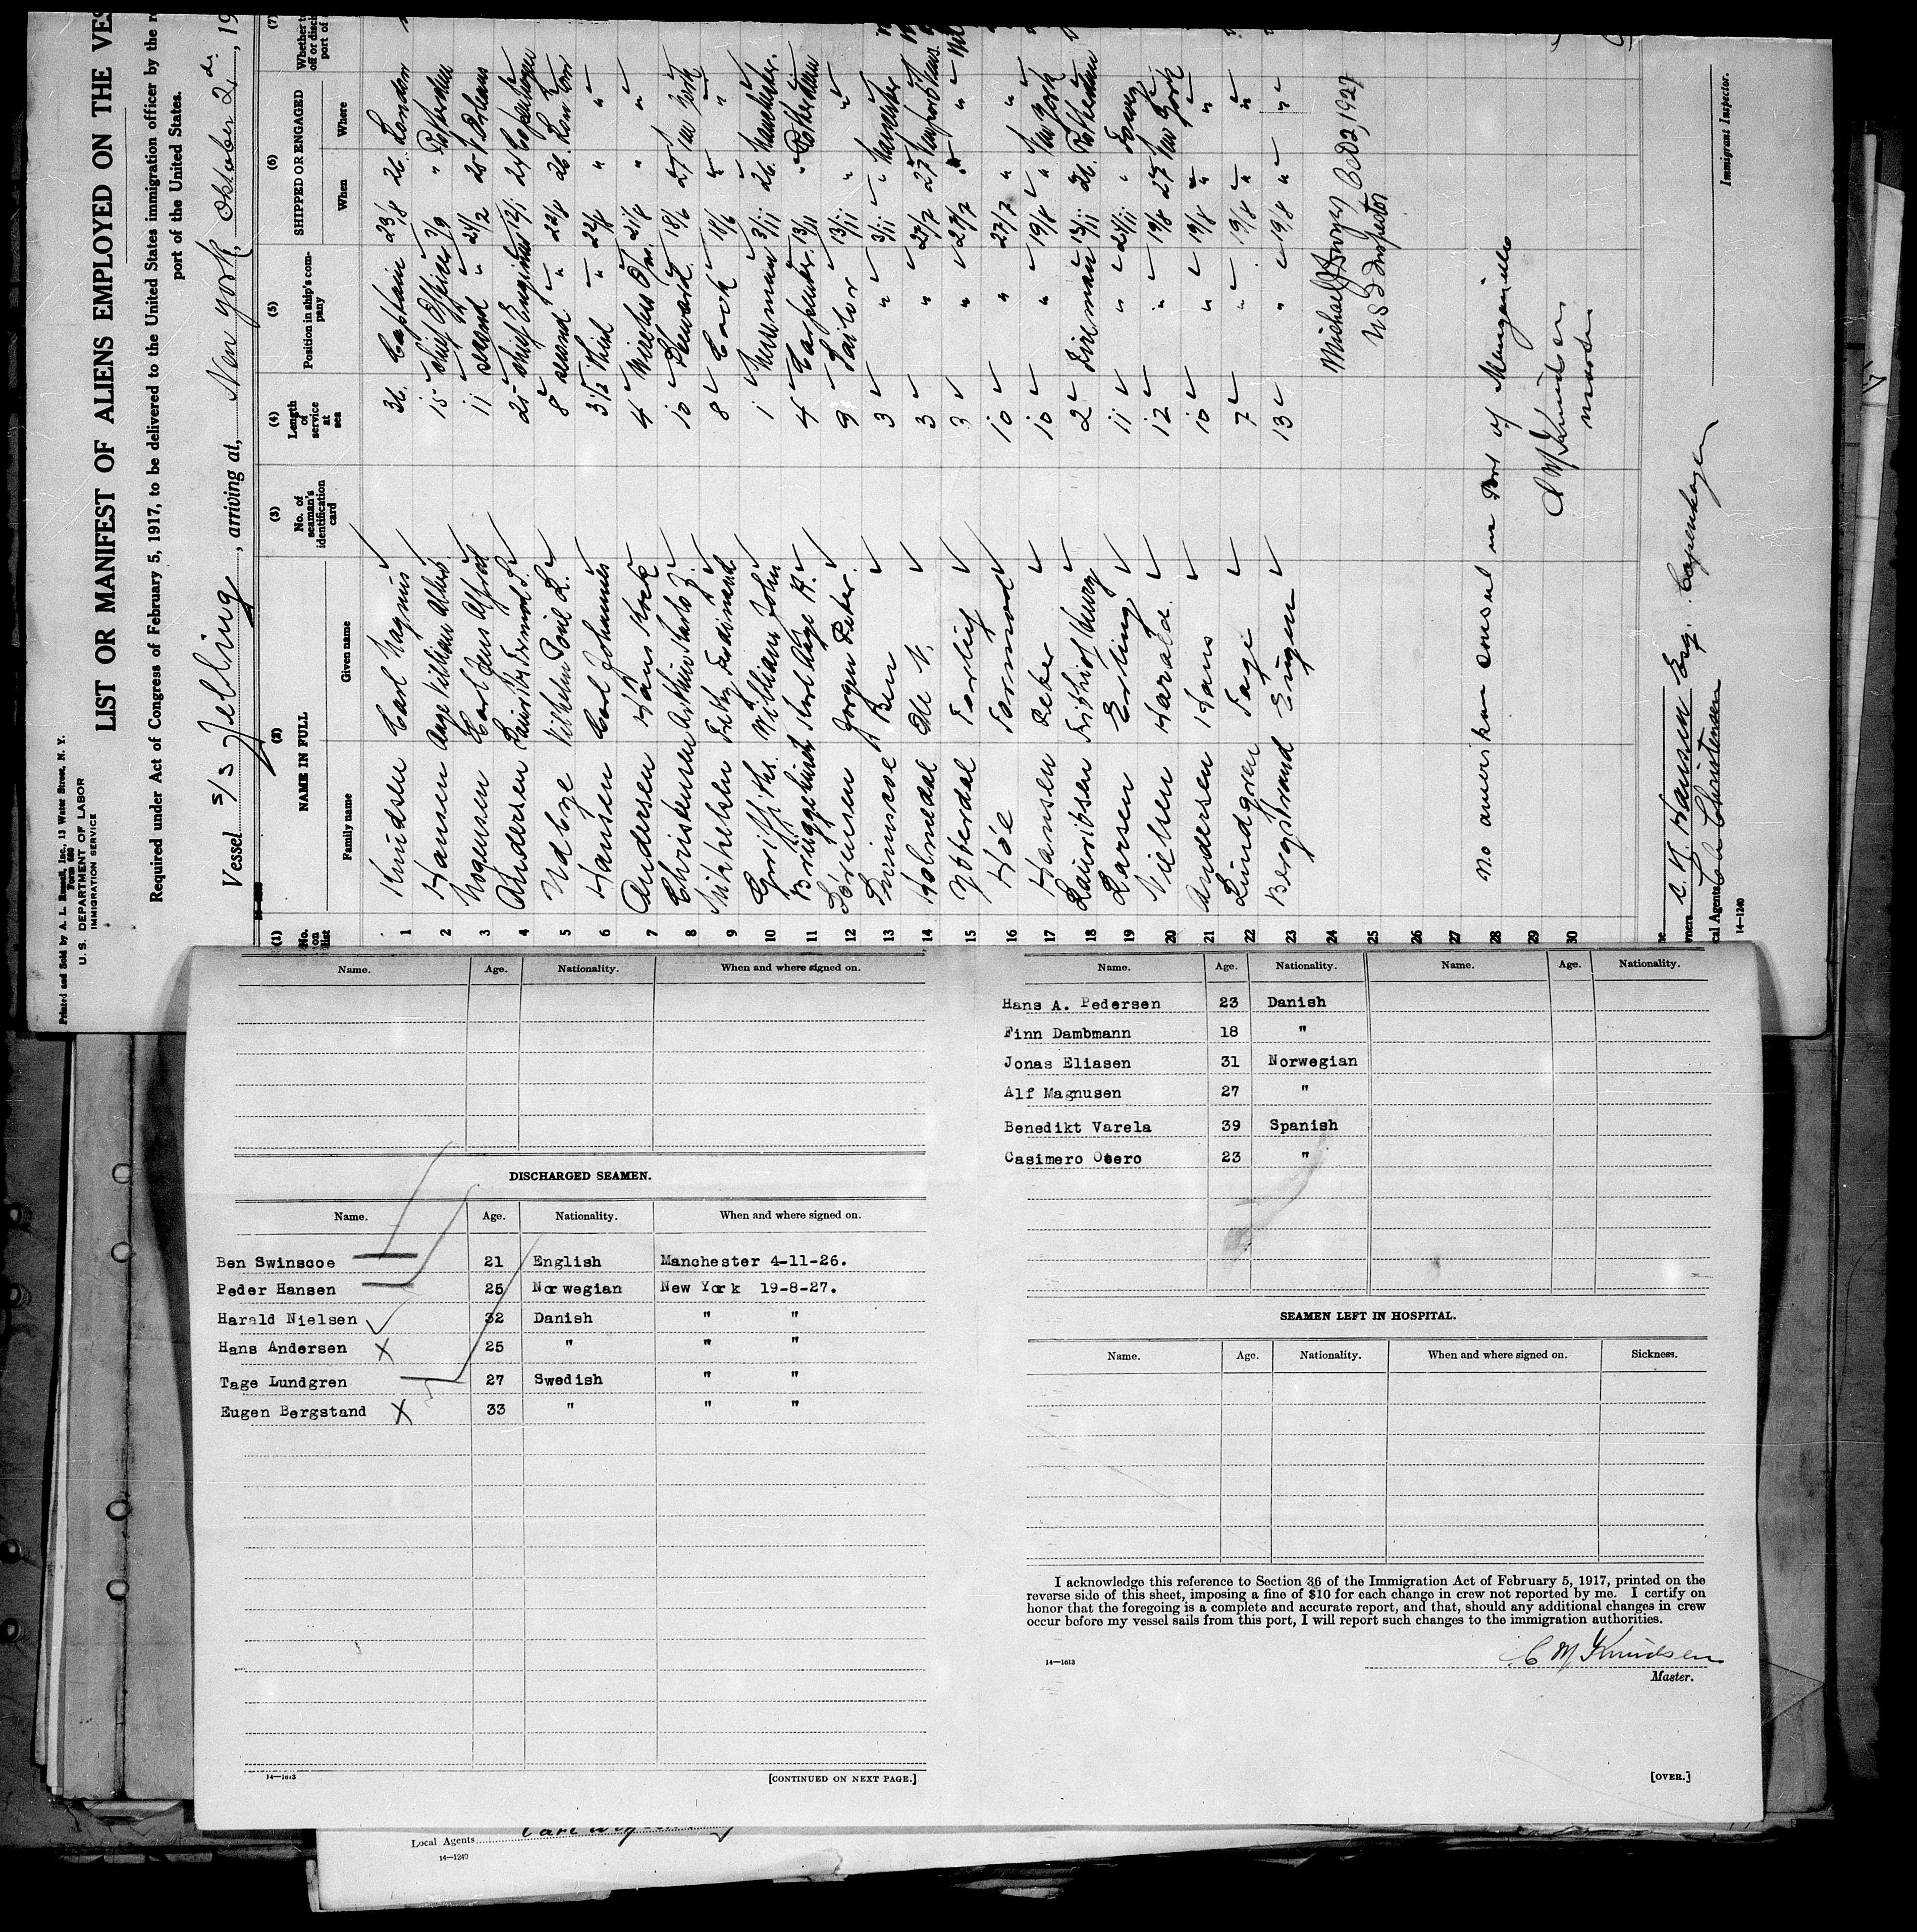 Printed and Sold by A. L. Russell, Inc., 13 Water Street, N. Y.
Form 680
U. S. DEPARTMENT OF LABOR
IMMIGRATION SERVICE
LIST OR MANIFEST OF ALIENS EMPLOYED ON THE VES
Required under Act of Congress of February 5, 1917, to be delivered to the United States immigration officer by the
port of the United States.
Vessel S/S Jelling, arriving at, New York, Oktober 2d., 19
(1) (2) (3) (4) (5) (6) (7)
No. on list
NAME IN FULL
Family name Given name
No. of seaman's identification card
Length of service at sea
Position in ship's company
SHIPPED OR ENGAGED
When Where
1 Knudsen Carl Magnus 36 Captain 23/8 26 London
2 Hansen Aage Villiam Albert 15 Chief Officer 3/9 " Rotterdam
3 Mogensen Carl Jens Alfred 11 second " 24/2 25 N. Orleans
4 Andersen Lauritz 25 Chief Engineer 12/1 24 Copenhagen
5 Udbye Vilhelm Poul R. 8 second " 22/8 26
6 Hansen Carl Johannes 3 1/2 Third " 22/8 " "
7 Andersen Hans Krek 4 Wireless Opr. 21/8 " "
8 Christensen Arthur Charles J. 10 Steward 18/6 27 New York
9 Mikkelsen Fritz Ferdinand 8 Cook 18/6 " "
10 Griffiths William John 1 Messman 3/11 26 Manchester
11 Brüggebusch Age H. 4 Carpenter 13/11 " Rotterdam
12 Sørensen Jørgen Peter 9 Sailor 13/11 " "
13 Swinscoe Ben 3 " 3/11 " Manchester
14 Holmedal Ole N. 3 " 27/7 27 Newport News
15 Ytterdal Torleif 3 " 27/7 " "
16 Hoe Tormod 10 " 27/7 " "
17 Hansen Peder 10 " 19/8 " New York
18 Lauritsen Frithiof Henry 2 Fireman 13/11 26 Rotterdam
19 Larsen Erling 11 " 24/11 "
20 Nielsen Harald 12 " 19/8 27 New York
21 Andersen Hans 10 " 19/8 " "
22 Lundgren Tage 7 " 19/8 " "
23 Bergstrand Eugen 13 " 19/8 " "
24
25
26
27
28
29
30
Michael J. Oct 2, 1927
U S I Inspector
No amerikan consul in Port of Manzanillo
C M Knudsen
master
Immigrant Inspector.
Owners C. K. Hansen Esq. Copenhagen
cal Agents Christensen
14—1240
Name. Age. Nationality. When and where signed on.
DISCHARGED SEAMEN.
Name. Age. Nationality. When and where signed on.
Ben Swinscoe 21 English Manchester 4-11-26.
Peder Hansen 25 Norwegian New York 19-8-27.
Harald Nielsen 32 Danish " "
Hans Andersen X 25 " " "
Tage Lundgren 27 Swedish " "
Eugen Bergstand X 33 " " "
14—1613
[CONTINUED ON NEXT PAGE.]
Name. Age. Nationality. Name. Age. Nationality.
Hans A. Pedersen 23 Danish
Finn Dambmann 18 "
Jonas Eliasen 31 Norwegian
Alf Magnusen 27 "
Benedikt Varela 39 Spanish
Casimero Otero 23 "
SEAMEN LEFT IN HOSPITAL.
Name. Age. Nationality. When and where signed on. Sickness.
I acknowledge this reference to Section 36 of the Immigration Act of February 5, 1917, printed on the
reverse side of this sheet, imposing a fine of $10 for each change in crew not reported by me. I certify on
honor that the foregoing is a complete and accurate report, and that, should any additional changes in crew
occur before my vessel sails from this port, I will report such changes to the immigration authorities.
C M Knudsen
14—1613
Master.
[OVER.]
Local Agents
14—1240